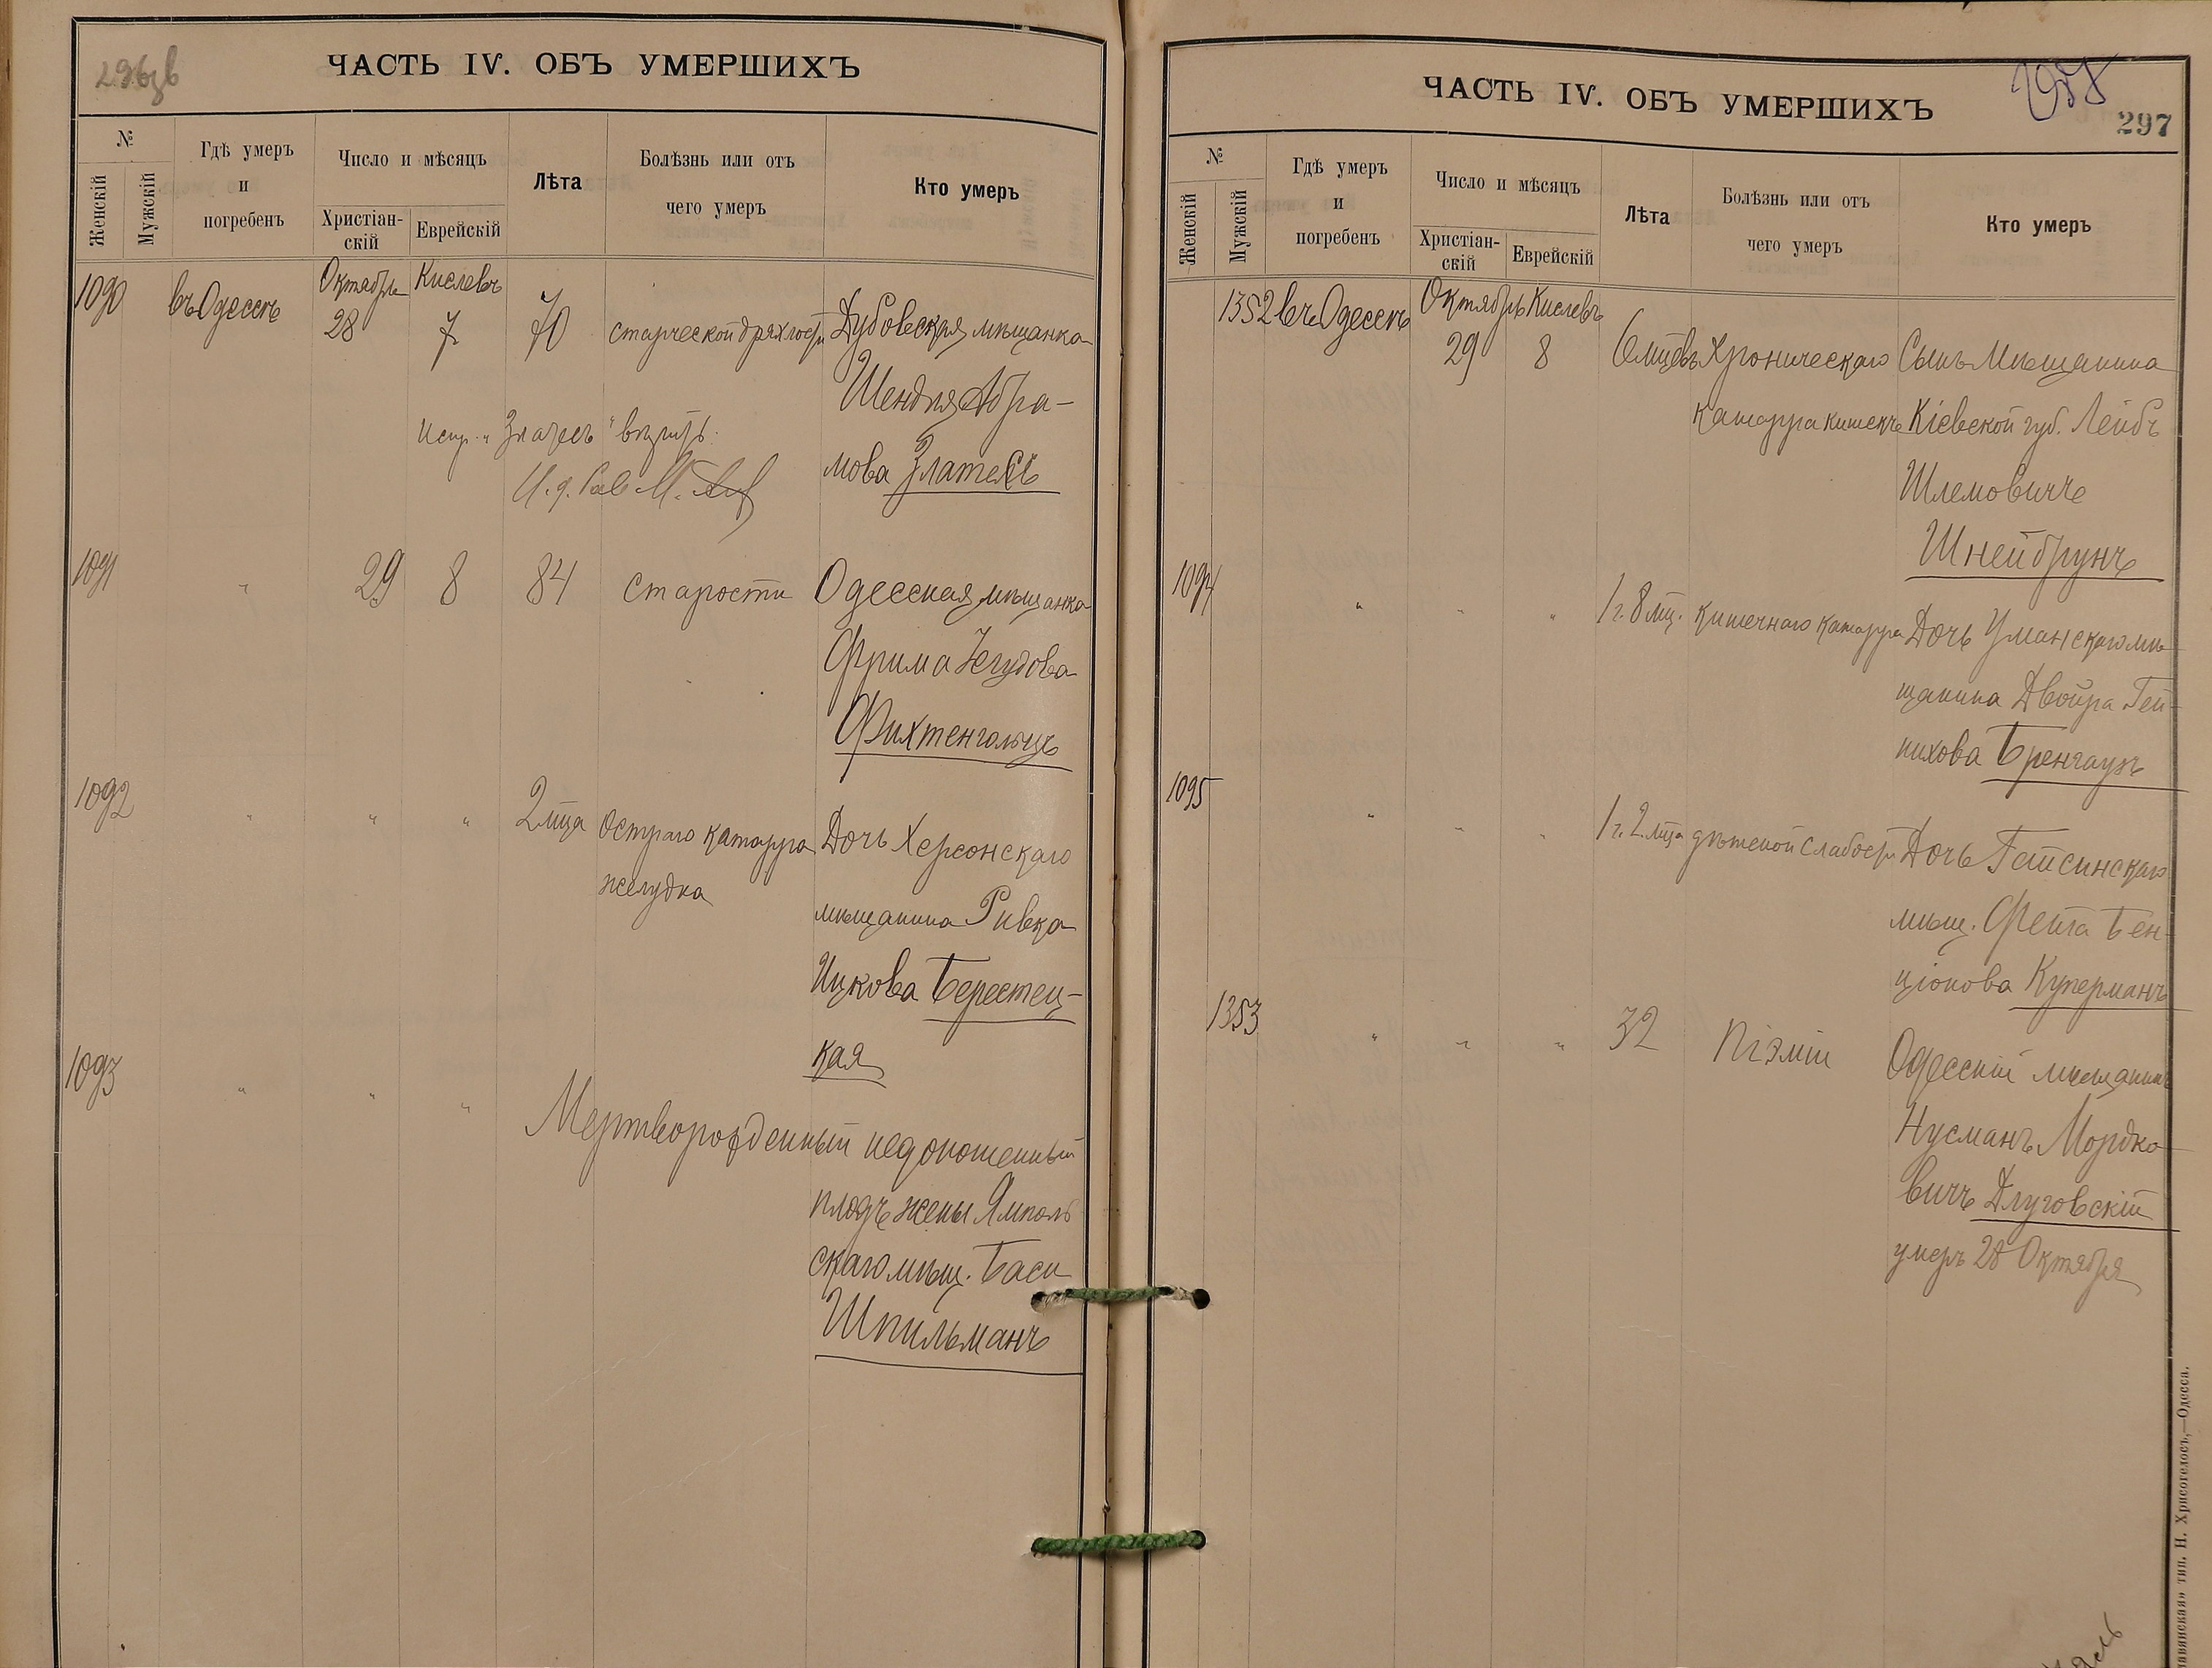 296зв
ЧАСТЬ IV. ОБЪ УМЕРШИХЪ
№
Женскій
Мужскій
Гдѣ умеръ
и
погребенъ
Число и мѣсяцъ
Христіан-
скій
Еврейскій
Лѣта
Болѣзнь или отъ
чего умеръ
Кто умеръ
1090 въ Одессѣ Октябрь Кислевъ
28 7 70 старческой дряхлости Дубовская мѣщанка
Шендля Абра-
мова Златесъ
Испр. „Златесъ“ вѣрить.
И. д. Рав М.
1091 " 29 8 84 Старости Одесская мѣщанка
Фрима Іегудова
Фихтенгольцъ
1092 " " " 2 мца Остраго катарра Дочь Херсонскаго
желудка
мѣщанина Ривка
Ицкова Берестец-
кая
1093 " " " Мертворожденный недоношенный
плодъ жены Ямполь
скаго мѣщ. Баси
Шпильманъ
ЧАСТЬ IV. ОБЪ УМЕРШИХЪ
297
№
Женскій
Мужскій
Гдѣ умеръ
и
погребенъ
Число и мѣсяцъ
Христіан-
скій
Еврейскій
Лѣта
Болѣзнь или отъ
чего умеръ
Кто умеръ
1352 въ Одессѣ Октябрь Кислевъ
29 8 6 мцевъ Хроническаго Сынъ Мѣщанина
катарра кишекъ Кіевской губ. Лейбъ
Шлемовичъ
Шнейбрунъ
1094 " " " 1 г. 8 мц. кишечнаго катарра Дочь Уманскаго мѣ
щанина Двойра Гей-
нихова Бренгаузъ
1095 " " " 1 г. 2 мца дѣтской слабости Дочь Гайсинскаго
мѣщ. Фейга Бен-
ціонова Куперманъ
1353 " " " 32 Піэміи Одесскій мѣщанинъ
Нусманъ Мордко
вичъ Длуговскій
умеръ 28 Октября
тип. Н. Хрисогелосъ,—Одесса.